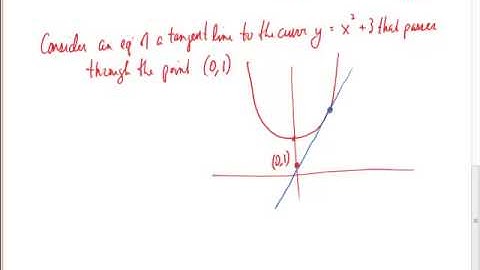 Consider an eqⁿ of a tangent line to the curve y = x² + 3 that passes
through the point (0,1)
(0,1)